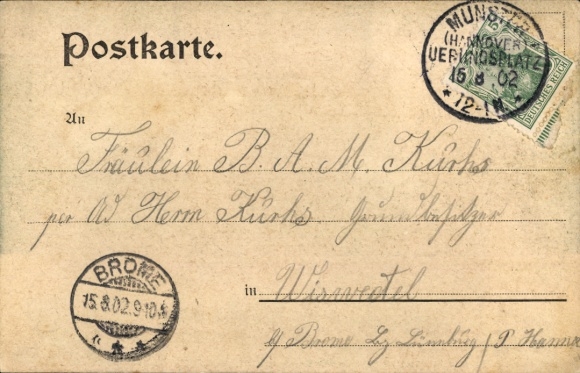 Postkarte.
MUNSTER
(HANNOVER)
UEBUNGSPLATZ
15 8 02
* 12-1N. *
DEUTSCHES REICH
An
Fräulein B. A. M. Kürhs
per Ad Herrn Kürhs. Grundbesitzer
in Wiswedel
BROME
15.8.02.9-10
Brome Bz Lüneburg (P. Hanno